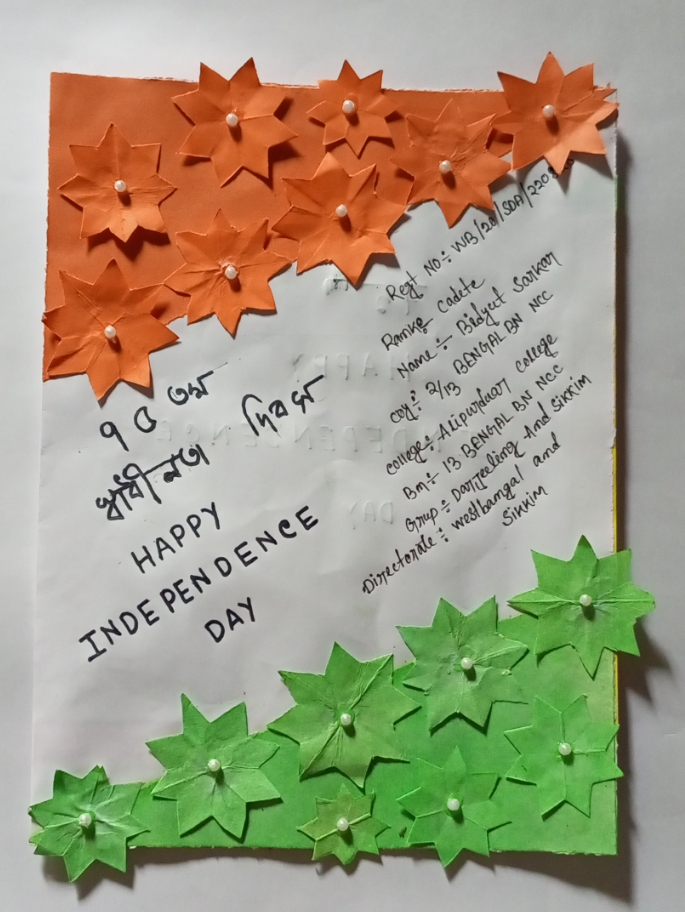 ৭৫ তম
স্বাধীনতা দিবস
HAPPY
INDEPENDENCE
DAY
Regt NO:- WB/20/SDA/220
Rank:- Cadete
Name :- Bidyut Sarkar
coy:- 2/13 BENGAL BN NCC
college:- Alipurduar college
Bn:- 13 BENGAL BN NCC
Grup:- Darjeeling And Sikkim
Directorate:- westbamgal and
Sikkim